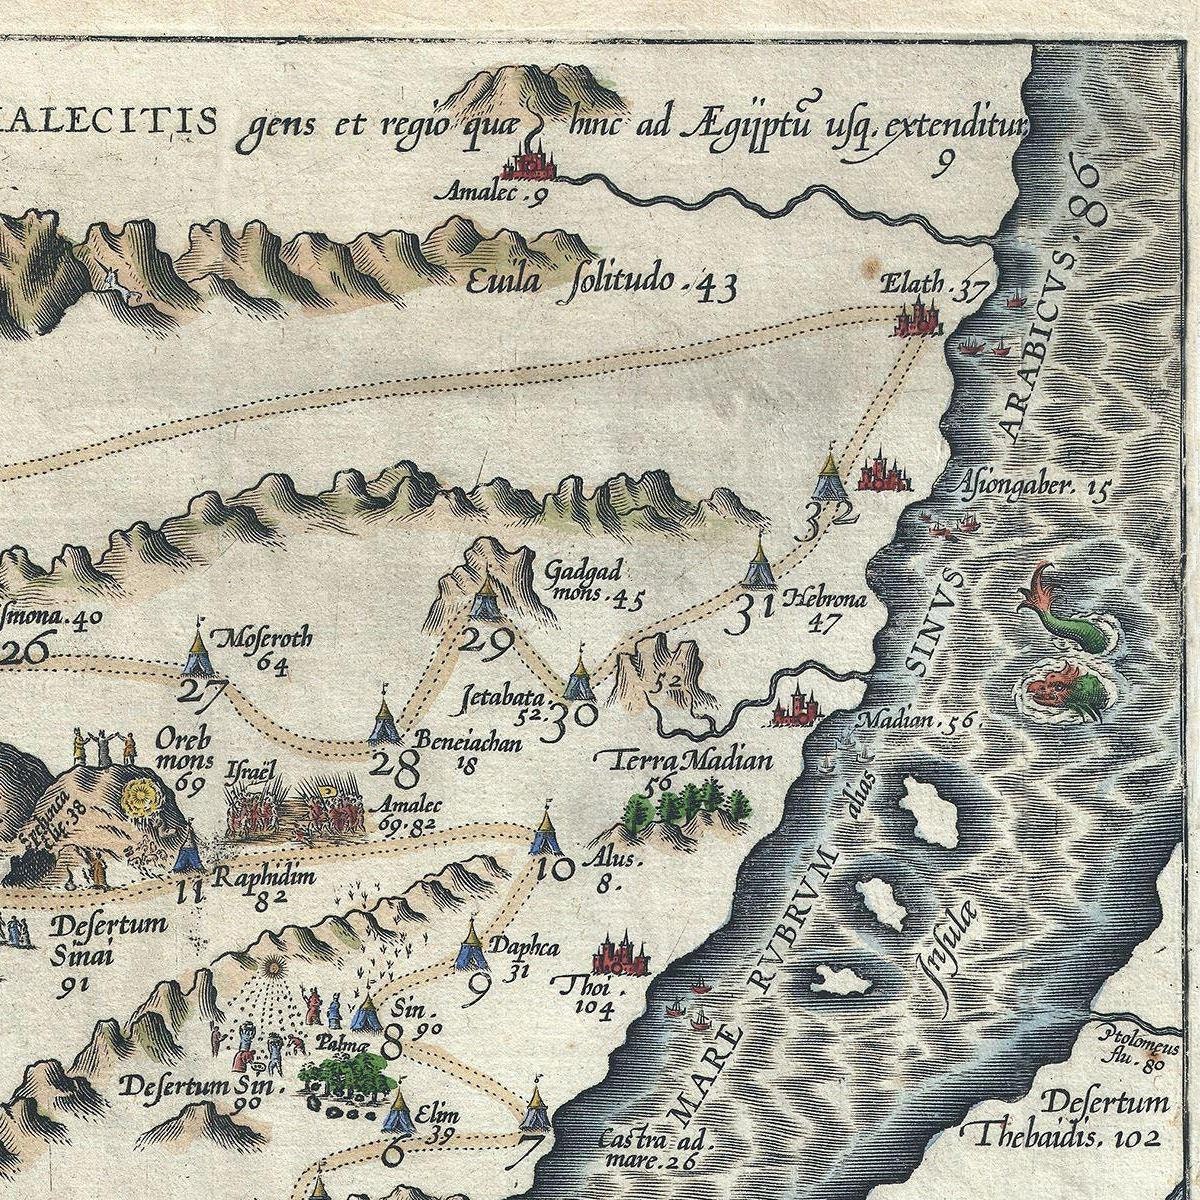 ALECITIS gens et regio quæ hinc ad Ægijptũ uſq. extenditur
9
Amalec . 9
Euila ſolitudo . 43
Elath . 37
ARABICVS . 86
Aſiongaber . 15
32
Gadgad
mons . 45
31
Hebrona
47
29
ſmona . 40
26
Moſeroth
64
27
SINVS
Jetabata .
52 .
30
52
Beneiachan
18
28
Madian . 56 .
Terra Madian
56
Oreb
mons
69
Iſraël
Amalec
69 . 82
alias
38
10
Alus .
8 .
11
Raphidim
82
MARE RVBRVM
Inſulæ
Deſertum
Sinai
91
Daphca
31
9
Thoi .
104
Sin .
90
8
Palmæ
Deſertum Sin .
90
Elim
39
6
7
Castra ad .
mare . 26
Ptolomeus
flu . 80
Deſertum
Thebaidis . 102